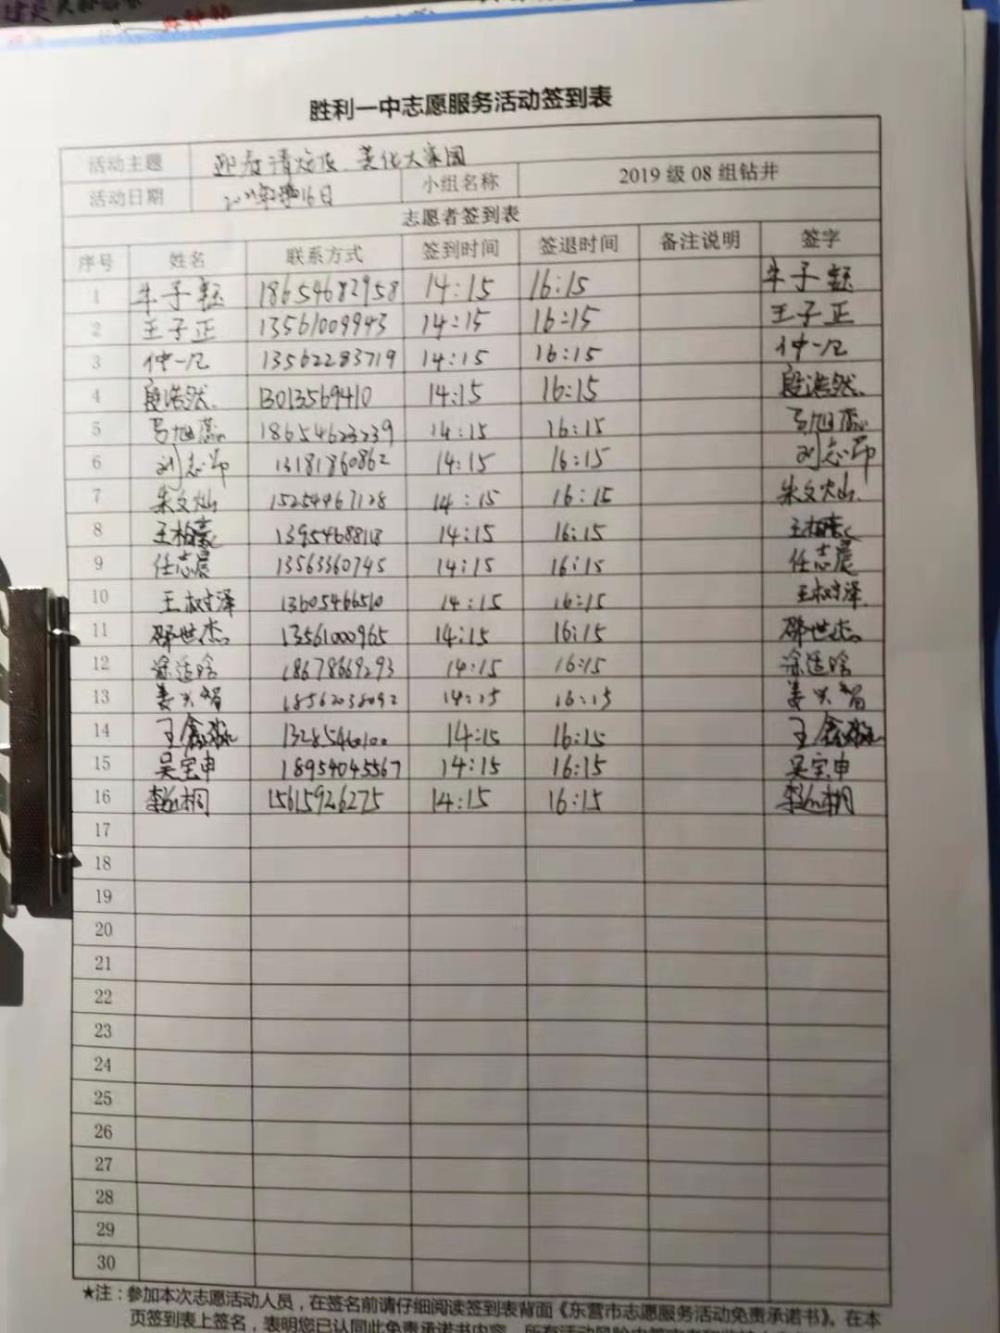 胜利一中志愿服务活动签到表
活动主题 迎春清 美化大家园
活动日期 16日 小组名称 2019级08组钻井
志愿者签到表
序号 姓名 联系方式 签到时间 签退时间 备注说明 签字
1 牛子钰 18654682958 14:15 16:15 牛子钰
2 王子正 13561009943 14:15 16:15 王子正
3 仲一凡 13562283719 14:15 16:15 仲一凡
4 段浩然 13013569410 14:15 16:15 段浩然
5 马旭 18654623239 14:15 16:15 马旭
6 刘志 13181860862 14:15 16:15 刘志
7 朱文灿 15254467128 14:15 16:15 朱文灿
8 王柏豪 14:15 16:15 王柏豪
9 任志晨 13563360745 14:15 16:15 任志晨
10 王树泽 13605466510 14:15 16:15 王树泽
11 邵世杰 13561000965 14:15 16:15 邵世杰
12 18678669293 14:15 16:15
13 姜兴智 18562038092 14:15 16:15 姜兴智
14 王鑫 14:15 16:15 王鑫
15 吴宝申 18954045567 14:15 16:15 吴宝申
16 李 桐 15615926275 14:15 16:15 李 桐
17
18
19
20
21
22
23
24
25
26
27
28
29
30
★注：参加本次志愿活动人员，在签名前请仔细阅读签到表背面《东营市志愿服务活动免责承诺书》。在本
页签到表上签名，表明您已认同此免责承诺书内容，所有活动风险由签字者